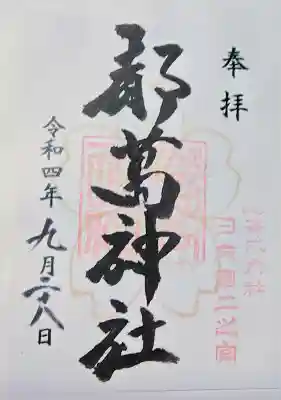 奉拝
式内社
日向國二之宮
都萬神社
令和四年九月二十八日